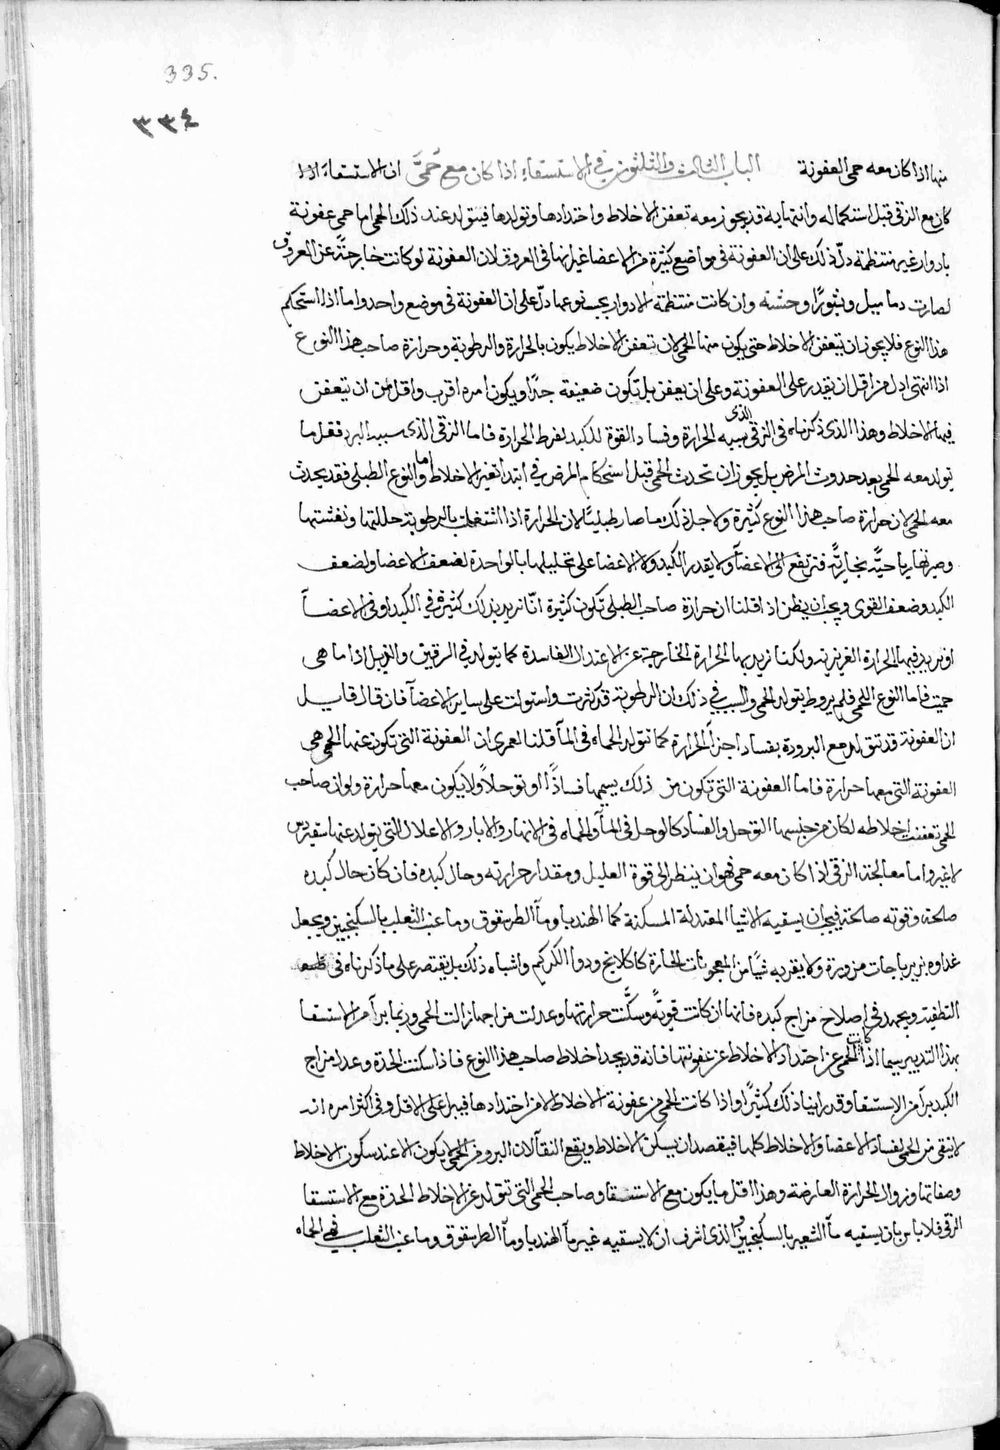 335.
٣٣٤
منها اذا كان معه حمى العفونة الباب الثالث والثلثون في الاستسقاء اذا كان مع حمى ان الاستسقاء اذا
كان مع الزقي قبل استكماله وانتهائه قد يجوز معه تعفن الاخلاط واحتدادها وتولدها فيتولد عند ذلك الحمى اما حمى عفونة
بادوار غير منتظمة دل ذلك على ان العفونة في مواضع كثيرة من الاعضا غير انها في العروق لان العفونة لو كانت خارجة عن العروق
لصارت دماميل وبثورا وخشنه وان كانت منتظمة الادوار بحسب نوعها دل على ان العفونة في موضع واحد واما اذا استحكم
هذا النوع فلا يجوز ان يتعفن الاخلاط حتى يكون منها الحمى لان تعفن الاخلاط يكون بالحرارة والرطوبة وحرارة صاحب هذا النوع
اذا انتهى اذل من اقل ان يقدر على العفونة وعلى ان يعفن بل تكون ضعيفة جدا ويكون امره اقرب واقل من ان تتعفن
فيها الاخلاط وهذا الذي ذكرناه في الزقي الذي سببه الحرارة وفساد القوة للكبد لفرط الحرارة فاما الزقي الذي سببه البرد فقل ما
تولد معه الحمى بعد حدوث المرض بل يجوز ان تحدث الحمى قبل استحكام المرض في ابتدا تغير الاخلاط واما النوع الطبلي فقد يحدث
معه الحمى لان حرارة صاحب هذا النوع كثيرة ولاجل ذلك ما صار طبليا لان الحرارة اذا اشتغلت بالرطوبة حللتها ونفشتها
وصيرتها رياحية بخارية فترتفع الى الاعضآ ولا يقدر الكبد ولا الاعضا على تحليلها بالواحدة لضعف الاعضا ولضعف
الكبد وضعف القوى ويجب ان يظن اذ اقلنا ان حرارة صاحب الطبلي تكون كثيرة انا نريد بذلك كثيرة في الكبد او في الاعضآ
او نريد فيها الحرارة الغريزية ولكنا نريد بها الحرارة الخارجة عن الاعتدال الفاسدة كما يتولد في السرقين والزبل اذا ما هي
حميت فاما النوع اللحمي فلم يروا ط يتولد الحمى والسبب في ذلك ان الرطوبة قد كثرت واستولت على ساير الاعضآ فان قال قايل
ان العفونة قد تتولد مع البرودة بفساد اجزآ الحرارة كما تتولد الحماه في المآ قلنا لعمري ان العفونة التي تكون عنها الحمى هي
العفونة التي معها حرارة فاما العفونة التي تكون من ذلك يسميها فسادا او توحلا ولا يكون معها حرارة ولو ان صاحب
الحمى تعفنت اخلاطه لكان من جنسها التوحل والفساد كالوحل في المآ والحماه في الانهار والابار والاعلال التي يتولد عنها سقيرس
لا غير واما معالجة الزقي اذا كان معه حمى فهو ان ينظر الى قوة العليل ومقدار حرارته وحال كبده فان كان حال كبده
صالحة وقوته صالحة فيجب ان يسقيه الاشيا المعتدلة المسكنة كمآ الهندبا ومآ الطرشقوق وما عنب الثعلب بالسكنجبين ويجعل
غذاوه بزيرباجات مزورة ولا يقربه شيا من المعجونات الحارة كالكلانج ودوا الكركم واشباه ذلك بل يقتصر على ما ذكرناه في
التطفية ويجهد في اصلاح مزاج كبده فانها ان كانت قوية وسكنت حرارتها وعدلت مزاجها زالت الحمى وربما برآ من الاستسقا
بهذا التدبير سيما اذا كانت الحمى عن احتداد الاخلاط عن عفونتها فانه قد يحد اخلاط صاحب هذا النوع فاذا سكنت الحدة وعدل مزاج
الكبد برآ من الاستسقا وقد راينا ذلك كثيرا واذا كانت الحمى من عفونة الاخلاط لا من احتدادها فيبرا على الاقل وفي اكثر امره انه
لا ينقى من الحمى لفساد الاعضا والاخلاط كلها فيقصد ان يسكن الاخلاط ويقع النقآ لان البرو من الحمى لا يكون الا عند سكون الاخلاط
وصفاتها وزوال الحرارة العارضة وهذا اقل ما يكون مع الاستسقا وصاحب الحمى التي تتولد عن الاخلاط الحدة مع الاستسقا
الزقي فلا باس بان يسقيه مآ الشعير بالسكنجبين والذي اشرف ان لا يسقيه غير مآ الهندبا ومآ الطرشقوق وما عنب الثعلب ففي الحماه